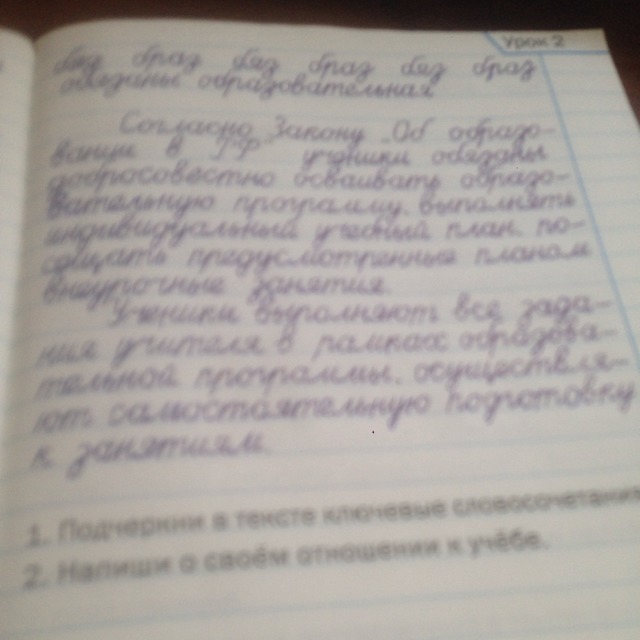 Урок 2
без браз без браз без браз
обязаны образовательная
Согласно Закону „Об образо-
вании в РФ" ученики обязаны
добросовестно осваивать образо-
вательную программу, выполнять
индивидуальный учебный план, по-
сещать предусмотренные планом
внеурочные занятия.
Ученики выполняют все зада-
ния учителя в рамках образова-
тельной программы, осуществля-
ют самостоятельную подготовку
к занятиям.
1. Подчеркни в тексте ключевые словосочетания
2. Напиши о своём отношении к учёбе.